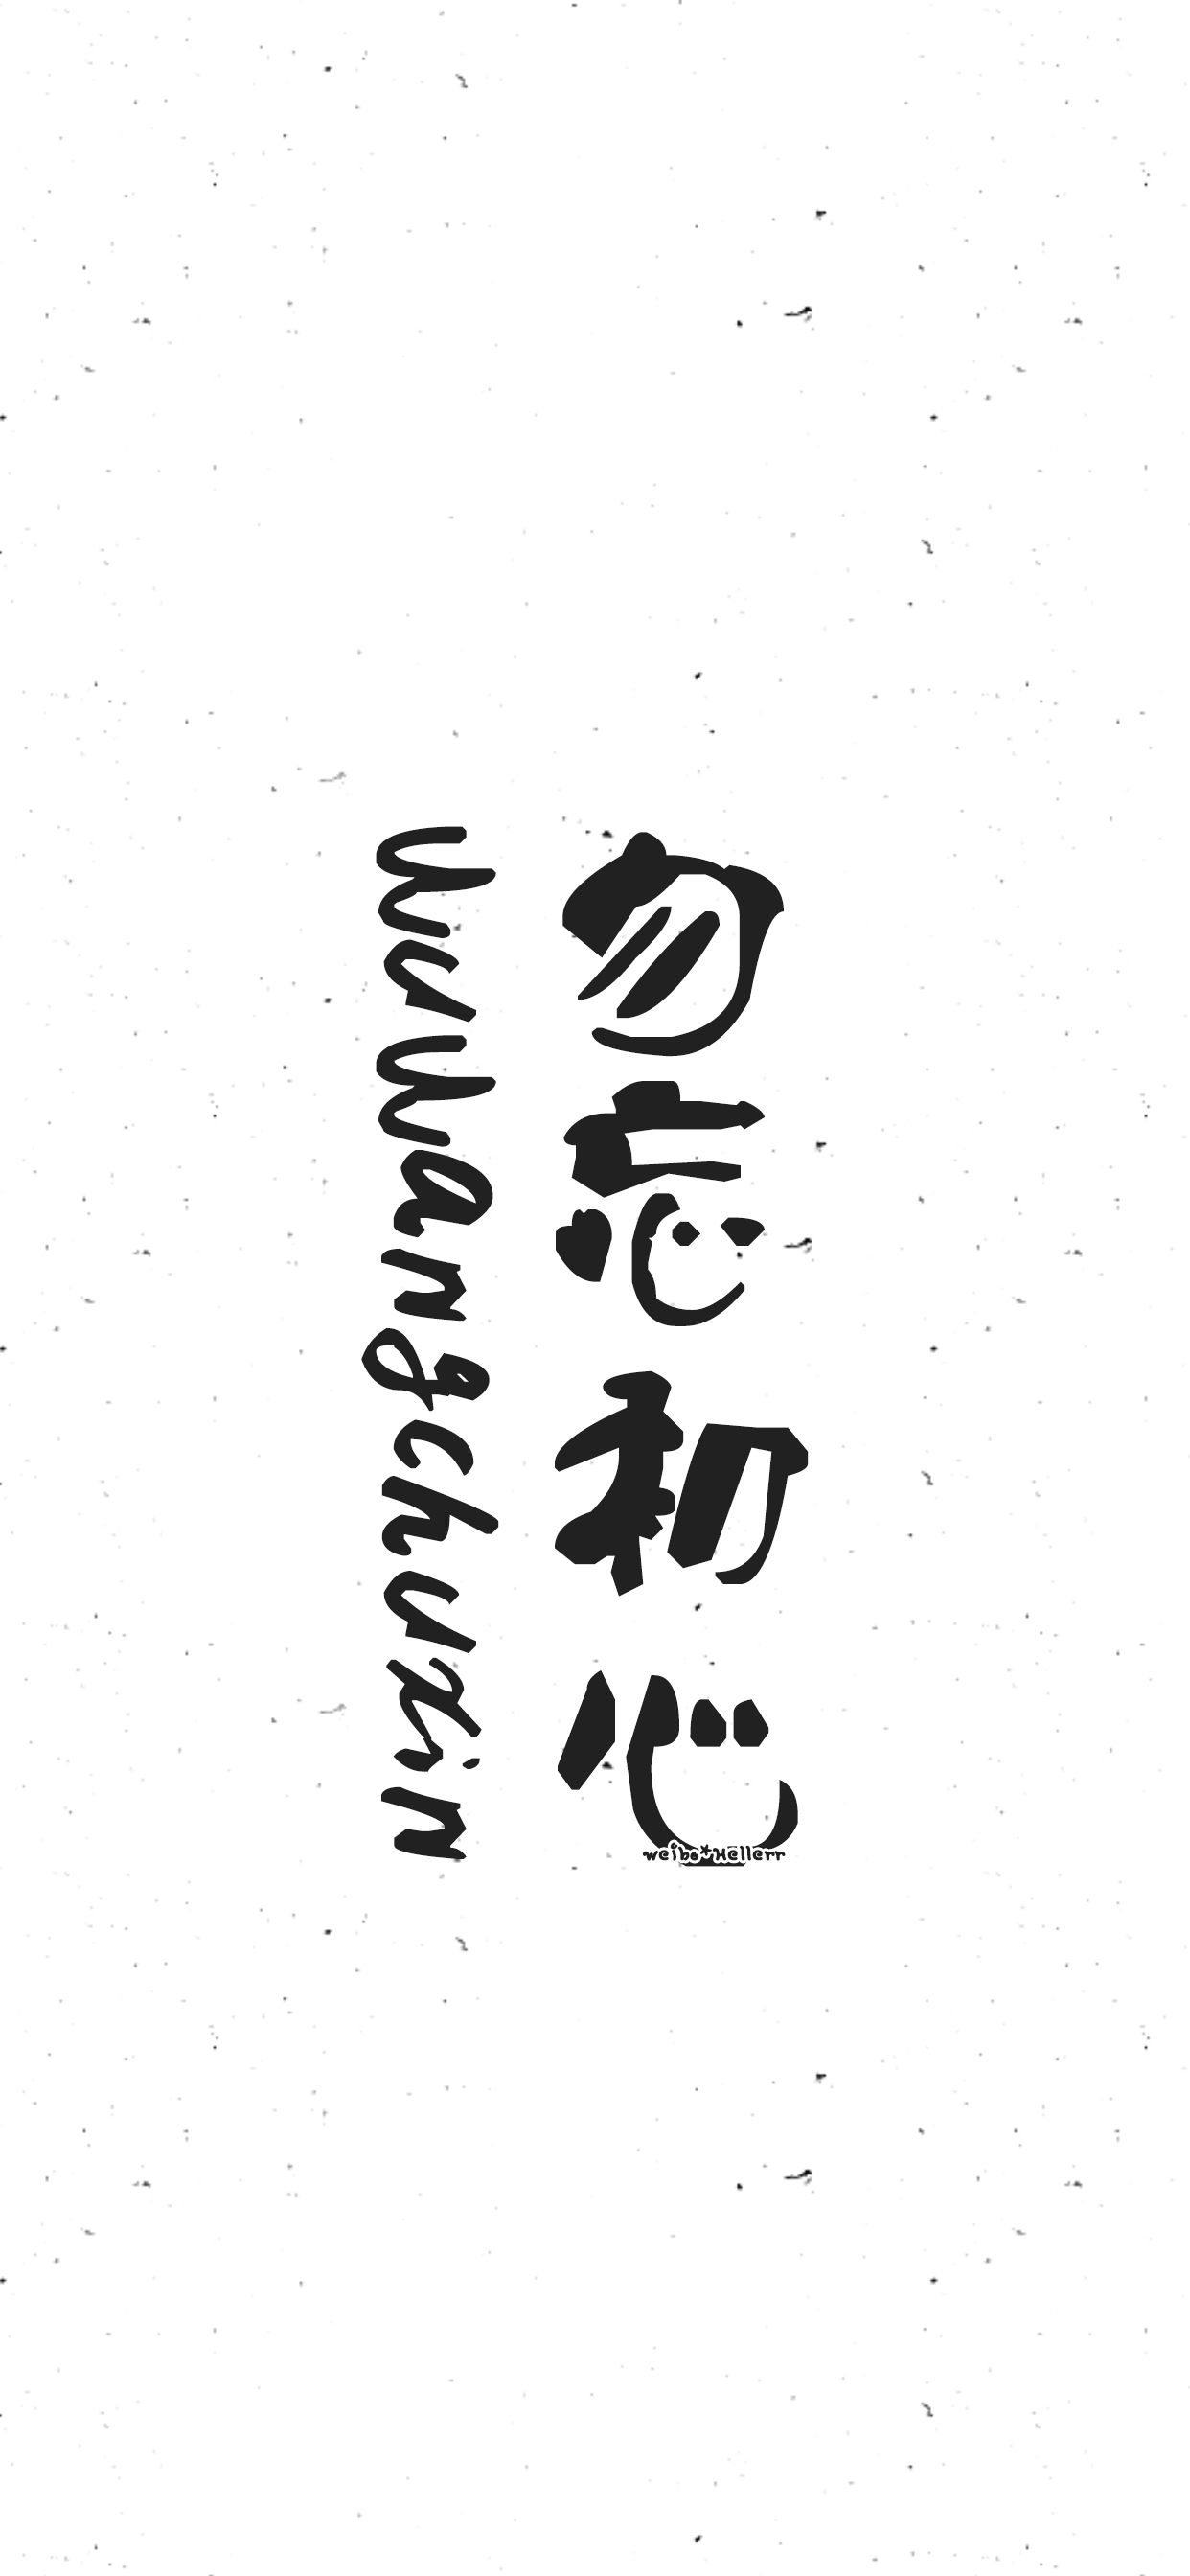 勿忘初心
WuWangchuxin
weibo★Hellerr